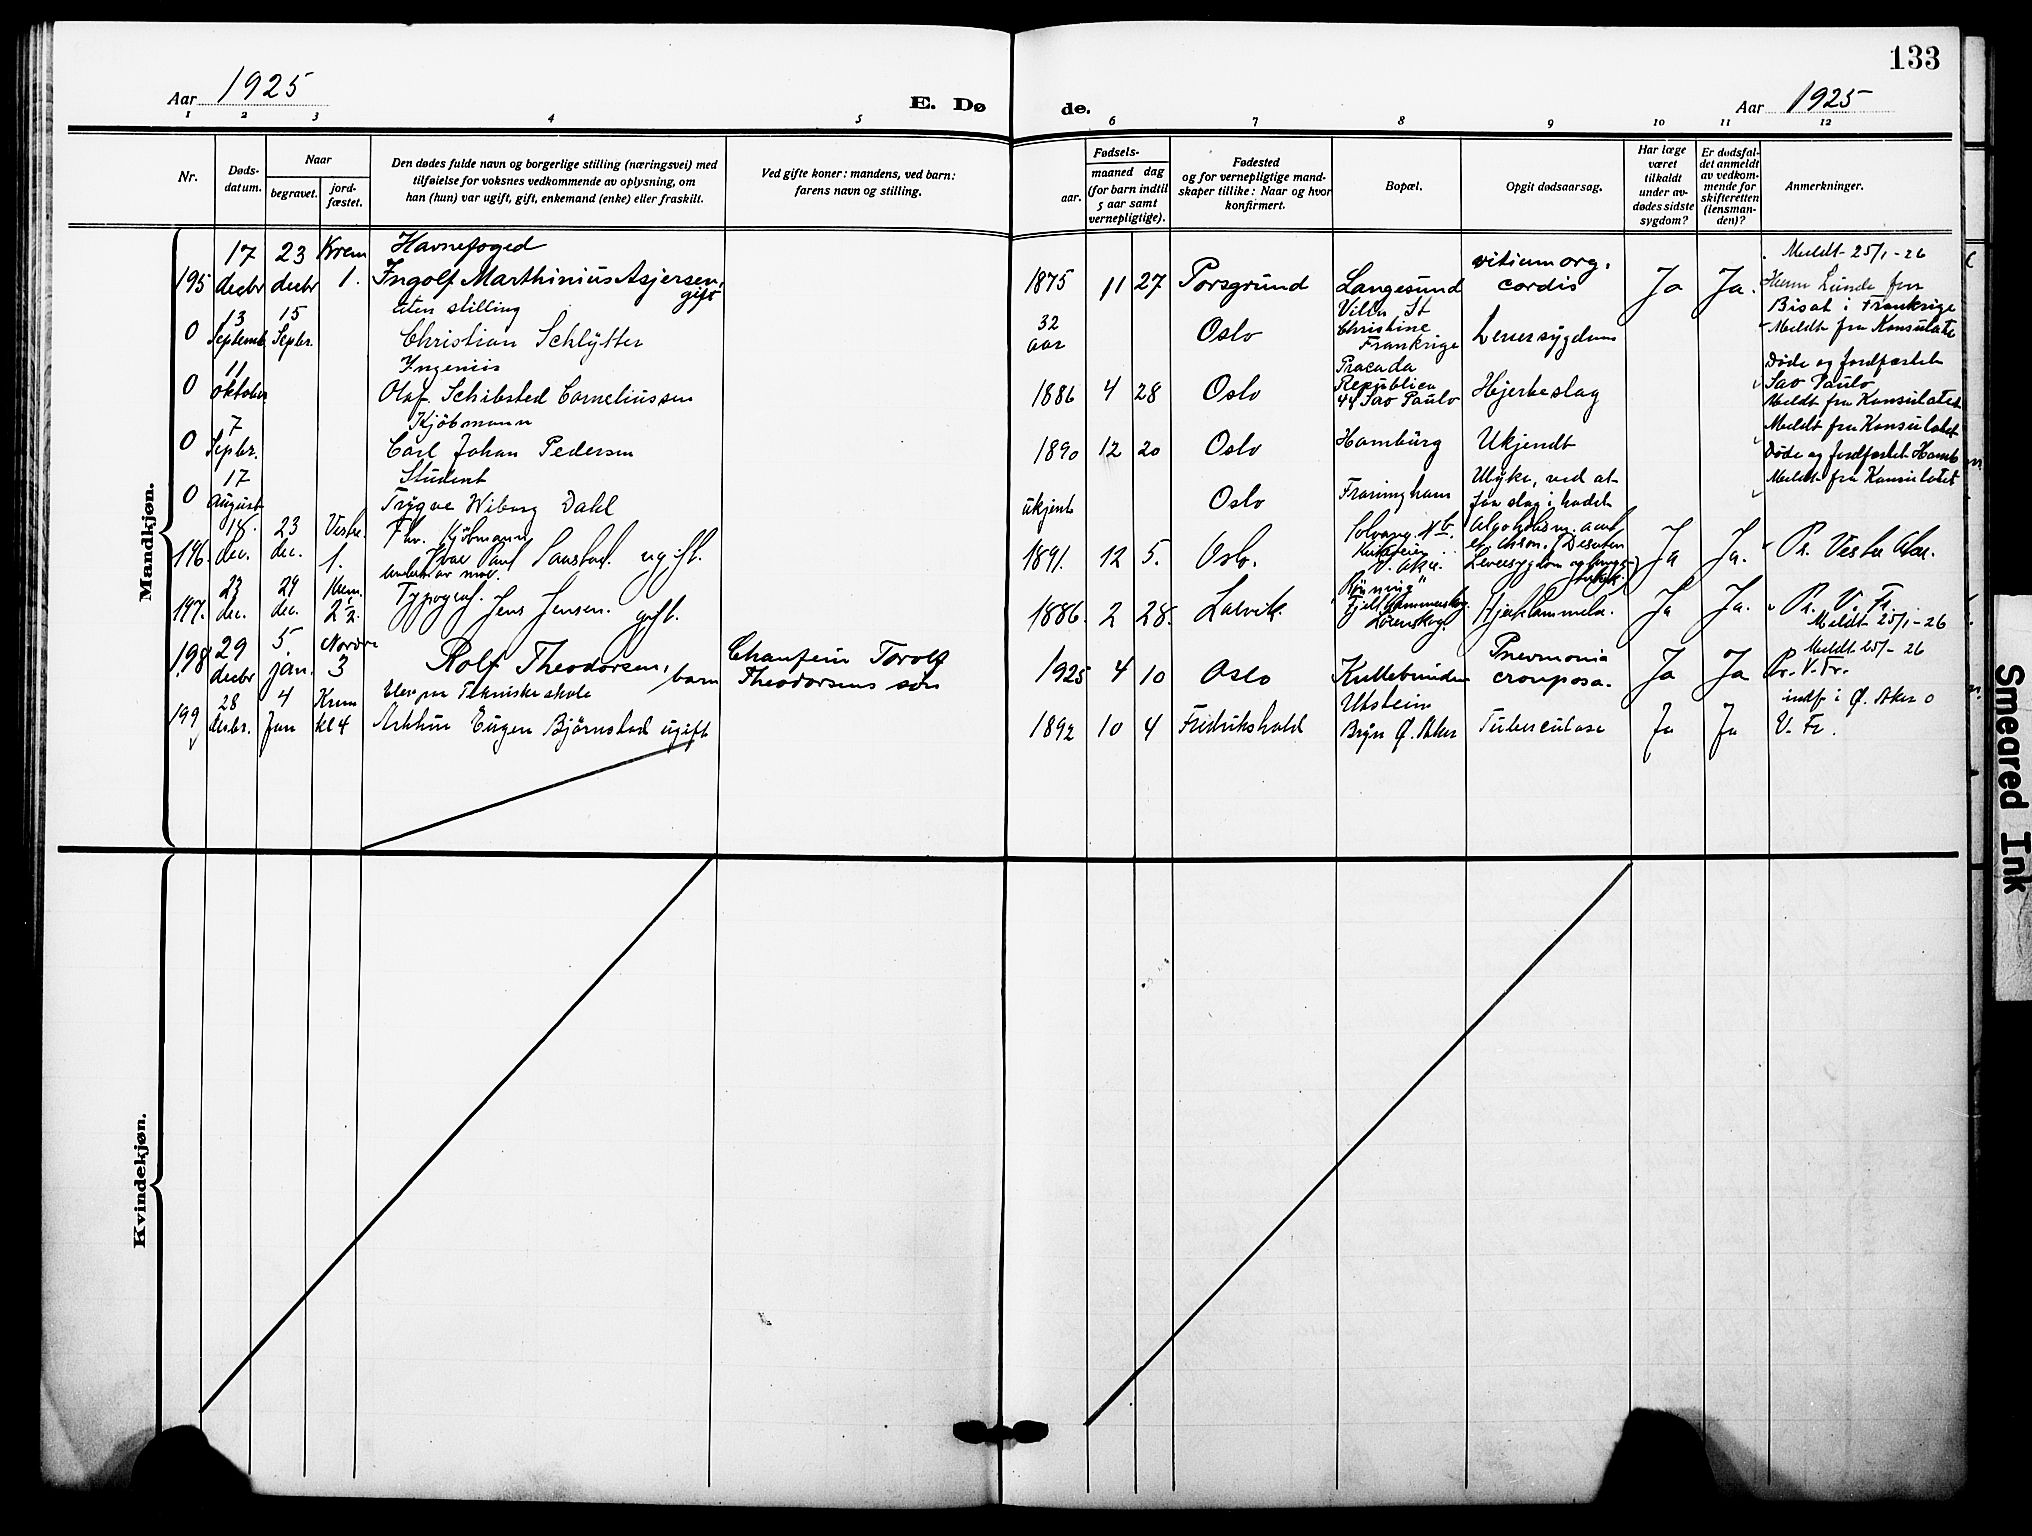 133
Aar 1925
E. Dø
de.
Aar 1925
1 2 3 4 5 6 7 8 9 10 11 12
Nr.
Døds-
datum.
Naar
begravet.
jord-
fæstet.
Den dødes fulde navn og borgerlige stilling (næringsvei) med
tilføielse for voksnes vedkommende av oplysning, om
han (hun) var ugift, gift, enkemand (enke) eller fraskilt.
Ved gifte koner: mandens, ved barn:
farens navn og stilling.
Fødsels-
aar.
maaned dag
(for barn indtil
5 aar samt
vernepligtige).
Fødested
og for vernepligtige mand-
skaper tillike: Naar og hvor
konfirmert.
Bopæl.
Opgit dødsaarsag.
Har læge
været
tilkaldt
under av-
dødes sidste
sygdom?
Er dødsfal-
det anmeldt
av vedkom-
mende for
skifteretten
(lensman-
den)?
Anmerkninger.
Mandkjøn.
17 23 Krem Havnefoged vitium org. Meldt 25/1-26
195 decbr decbr 1. Ingolf Marthinius Asjersen, gift 1875 11 27 Porsgrund Langesund cordis Ja Ja.
13 15 uten stilling 32 Villa St Bisat i Frankrige
0 Septemb Septbr. Christian Schlytter aar Oslo Christine Frankrige Leversygdom Meldt fra Konsulatet
11 Ingeniør Døde og jordfæstet
0 oktober Olaf Schibsted Corneliussen 1886 4 28 Oslo Republica 44 Sao Paulo Hjerteslag Sao Paulo Meldt fra Konsulatet
7 Kjøbmann Meldt fra Konsulatet
0 Septbr. Carl Johan Pedersen 1890 12 20 Oslo Hamburg Ukjendt Døde og jordfæstet Hamb
17 Student Ulyke, ved at Meldt fra Konsulatet
0 August Trygve Wiborg Dahl ukjent Oslo Framingham faa slag i hodet
18. 23 Vestre. Fhv. Kjøbmann
196 dec. dec. 1. Paul ugift. 1891. 12 5. Oslo. Ja Ja. Pr. Vestre Aker.
23 29 Krem. Typograf
197. dec. dec. 2½. Jens Jensen. gift. 1886. 2 28. Larvik. Lørenskog. Ja Ja. Pr. V. Fr.
Meldt 25/1-26
29 5. Nordre Chauffeur Torolf Pneumonia Meldt 25/1-26
198 decbr jan. 3 Rolf Theodorsen, barn Theodorsens søn 1925 4 10 Oslo crouposa. Ja Ja Pr. V. Fr.
28 4 Krem Elev paa Tekniske skole Utstein indf i Ø. Aker 0
199 Decbr. Jan kl 4 Arthur Eugen Bjørnstad ugift 1892 10 4 Fredrikshald Bryn Ø. Aker Tuberculose Ja Ja V. Fr.
Kvindekjøn.
Smeared Ink